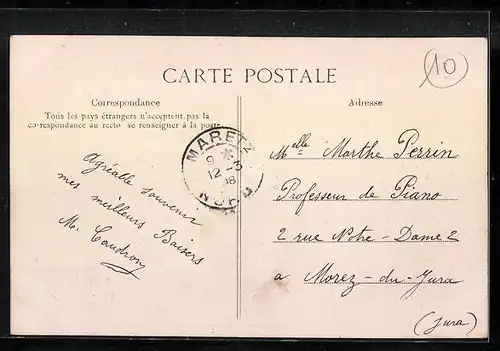 10
CARTE POSTALE
Correspondance
Tous les pays étrangers n'acceptent pas la
correspondance au recto, se renseigner à la poste
Adresse
MARETZ
9 *
12 - 3
08
NORD
Agréable souvenir
mes meilleurs Baisers
M. Caudron
Melle Marthe Perrin
Professeur de Piano
2 rue Nôtre-Dame 2
a Morez-du-Jura
(Jura)